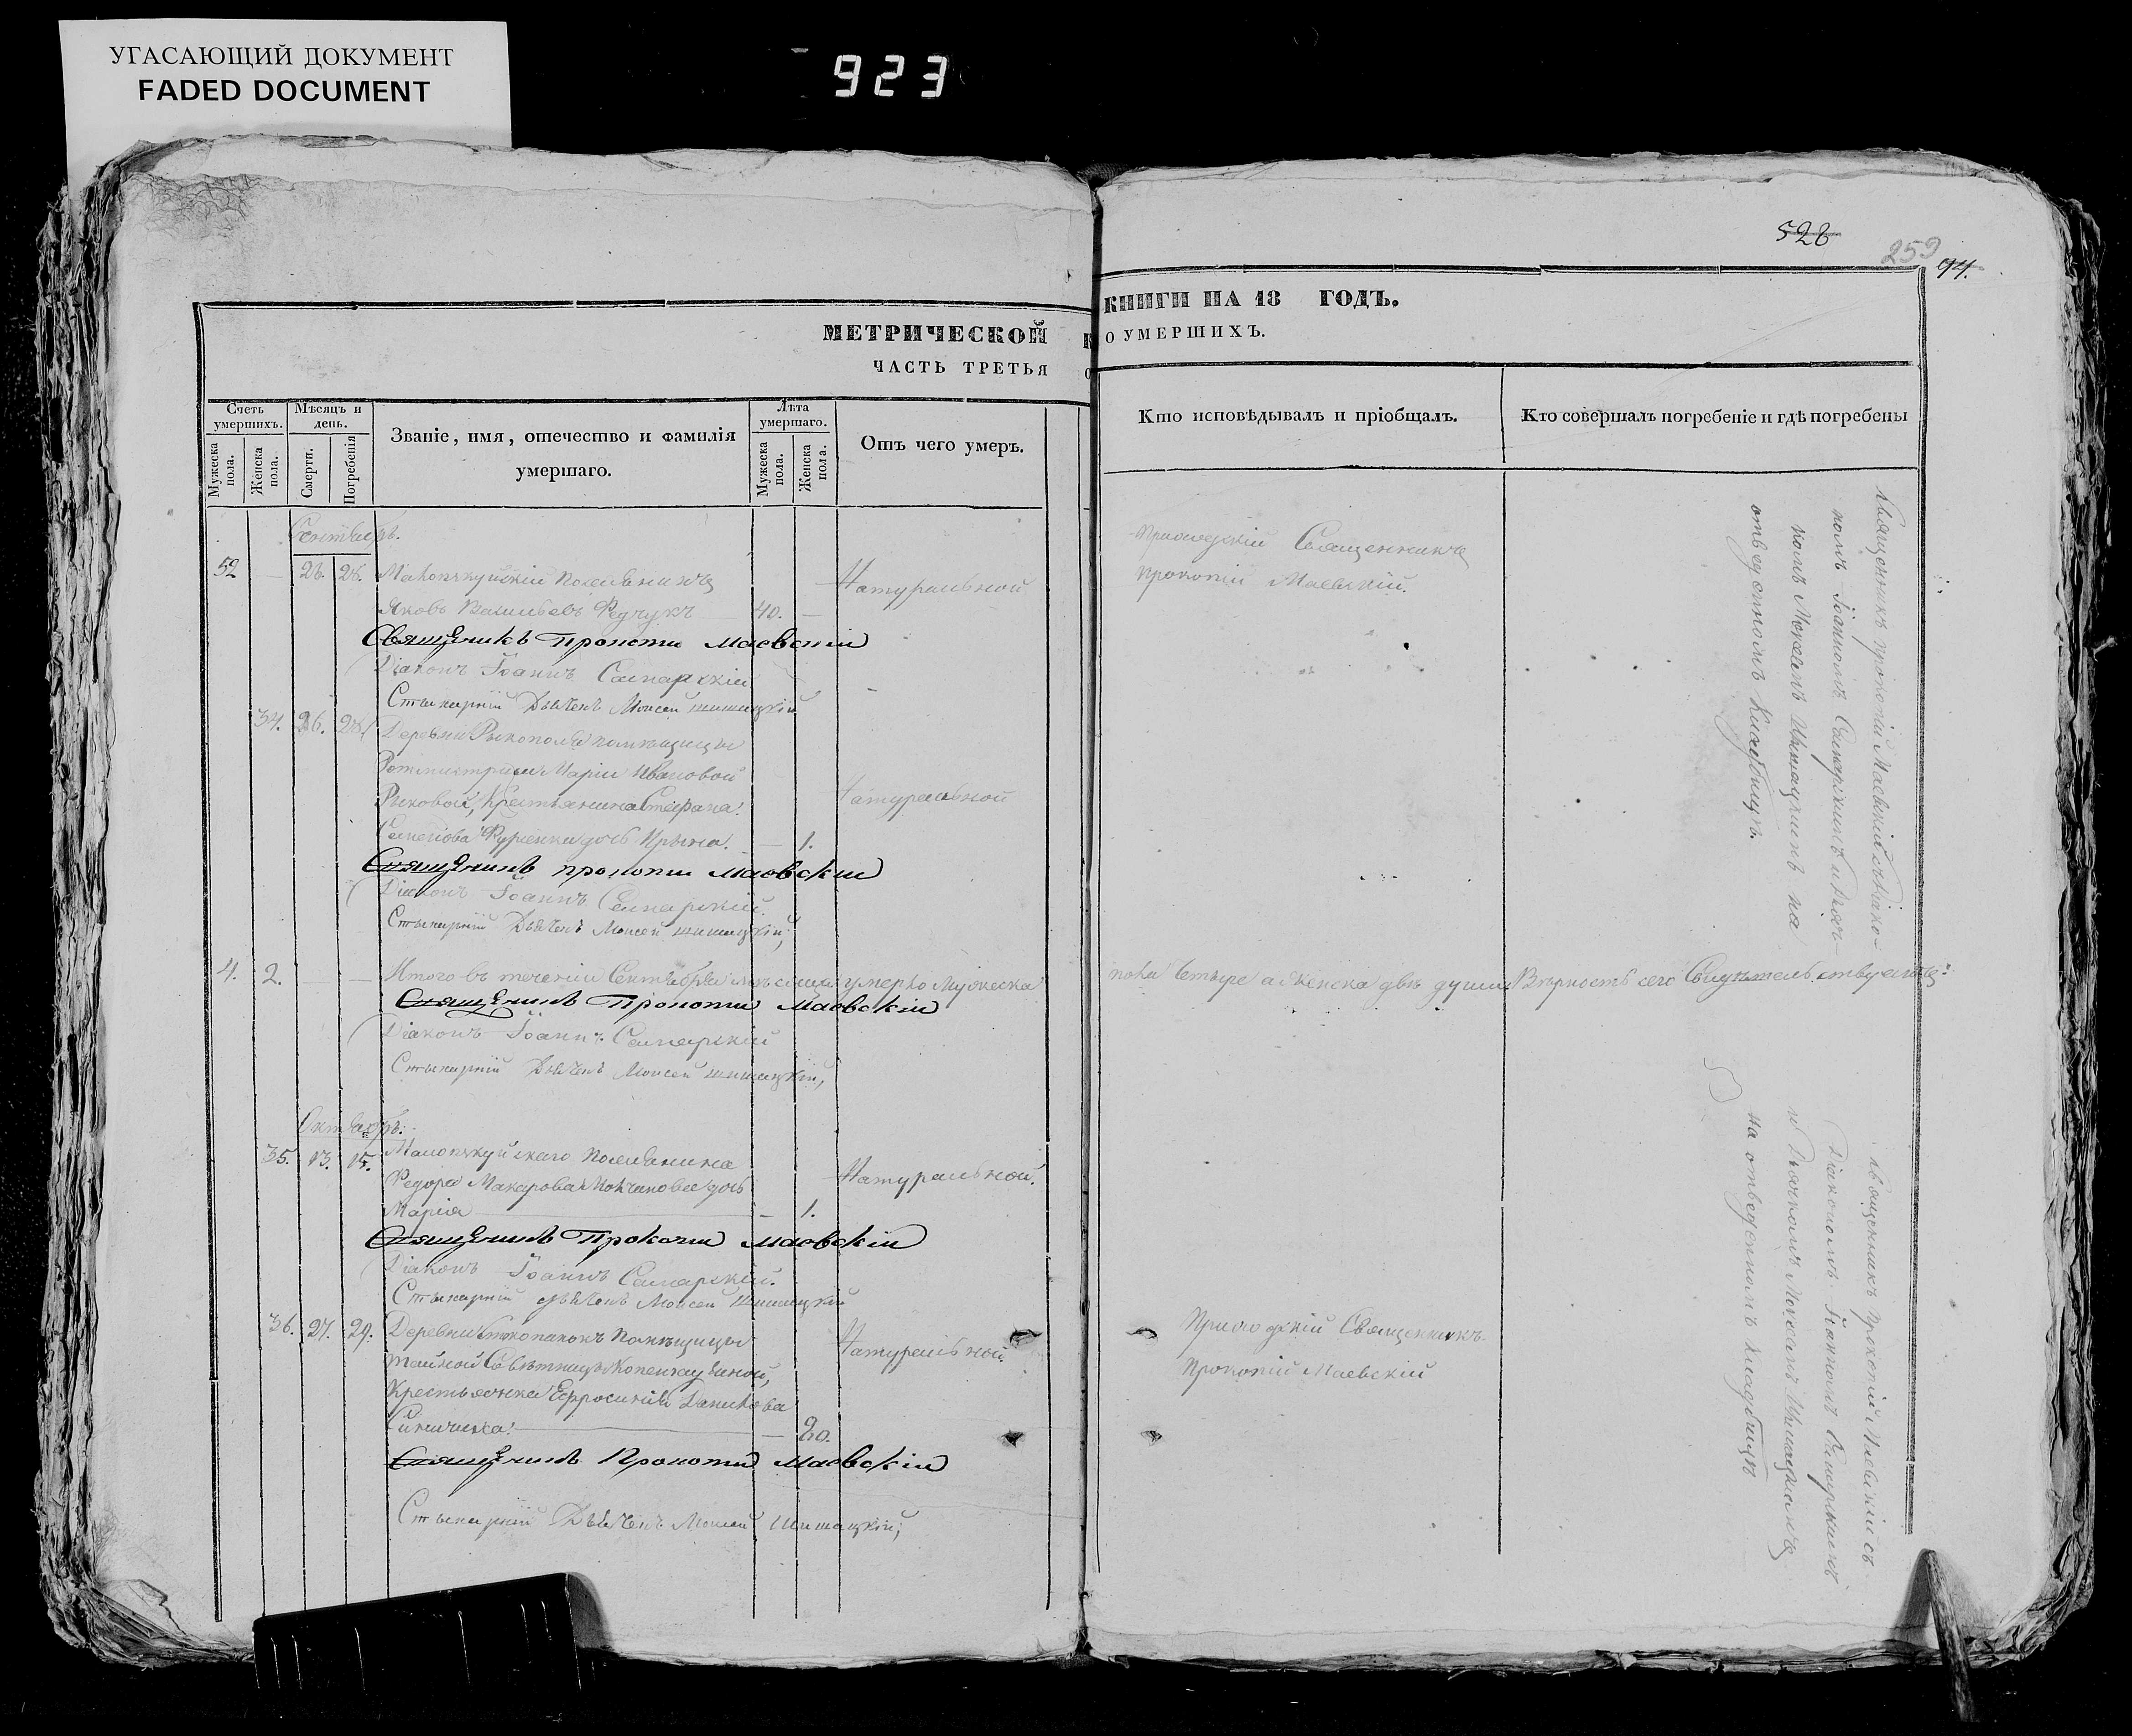 УГАСАЮЩИЙ ДОКУМЕНТ
FADED DOCUMENT
923
МЕТРИЧЕСКОЙ
ЧАСТЬ ТРЕТЬЯ
Счетъ умершихъ.
Мужеска пола.
Женска пола.
Мѣсяцъ и день.
Смерти.
Погребенія
Званіе, имя, отечество и фамилія
умершаго.
Лѣта умершаго.
Мужеска пола.
Женска пола.
Отъ чего умеръ.
Сентябрь.
52 — 26. 28.
Яковъ Васильевъ Редчукъ 40. —
Натуральной
Священикъ Прокопи Маевскій
Діаконъ Іоаннъ Самарскій
Дьячекъ Моисей Шишацкій
34. 26. 28.
Деревни помѣщицы
Ротмистрши Маріи Ивановой
Рыковой, крестьянина Стефана
дочь Ирына. — 1.
Натуральной
Священикъ Прокопи Маевскій
Діаконъ Іоаннъ Самарскій.
Дьячекъ Моисей Шишацкій;
4. 2. — —
Итого въ теченіи Сентября мѣсяца умерло Мужеска
Священикъ Прокопи Маевскій
Діаконъ Іоаннъ Самарскій
Дьячекъ Моисей Шишацкій,
Октябрь.
35. 13. 15.
Федора Макарова дочь
Марія — 1.
Натуральной.
Священикъ Прокопи Маевскій
Діаконъ Іоаннъ Самарскій.
Дьячекъ Моисей Шишацкій
36. 27. 29.
Деревни помѣщицы
тайной Совѣтницы
Крестьянка Ефросинія Данилова
— 20.
Натуральной.
Священикъ Прокопи Маевскій
Дьячекъ Моисей Шишацкій;
528
259
94.
КНИГИ НА 18 ГОДЪ.
О УМЕРШИХЪ.
Кто исповѣдывалъ и пріобщалъ.
Кто совершалъ погребеніе и гдѣ погребены
Приходскій Священникъ
Прокопій Маевскій.
Священникъ Прокопій Маевскій съ Діако-
номъ Іоанномъ Самарскимъ и Дяч-
комъ Моисеемъ Шишацкимъ на
отведенномъ кладбищѣ.
пола четыре а женска двѣ души Вѣрность сего Свидѣтельствуемъ:
Священникъ Прокопій Маевскій съ
Діакономъ Іоанномъ Самарскимъ
и Дьячкомъ Моисеемъ Шишацкимъ
на отведенномъ кладбищѣ
Приходскій Священникъ
Прокопій Маевскій